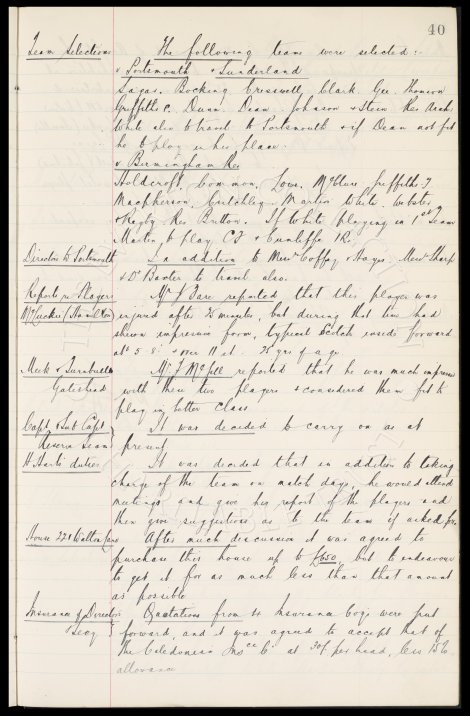 40
Team Selections The following teams were selected :-
v Portsmouth v Sunderland
Sagar. Bocking Cresswell, Clark Gee. Thomson
Griffiths P. Dunn. Dean. Johnson & Stein Res Archer
White also to travel to Portsmouth & if Dean not fit
he to play in his place.
v Birmingham Res
Holdcroft, Common, Lowe, McClure Griffiths T
Macpherson, Critchley. Martin White. Webster
& Rigby Res Britton. If White playing in 1st Team
Martin to play C.F & Cunliffe I.R.
Directors to Portsmouth In addition to Messrs Coffey & Hayes. Messrs Sharp
& Dr Baxter to travel also.
Reports re Players Mr J Fare reported that this player was
injured after 25 minutes, but during that time had
shewn impressive form, typical Scotch inside forward
abt 5.8 & over 11 st. 25 yrs of age.
Meek & Turnbull Mr. F McGill reported that he was much impressed
Gateshead with these two players & considered them fit to
play in better class
Capt. & Sub Capt It was decided to carry on as at
Reserve Team present
H Harts duties It was decided that in addition to taking
charge of the team on match days, he would attend
meetings and give his report of the players and
then give suggestions as to the team if asked for.
House 221 Walton Lane After much discussion it was agreed to
purchase this house up to £650, but to endeavour
to get it for as much less than that amount
as possible
Insurance of Directors Quotations from 4 Insurance Coys were put
& Secy forward, and it was agreed to accept that of
the Caledonian Insce Co at 30/- per head, less 15%
allowance